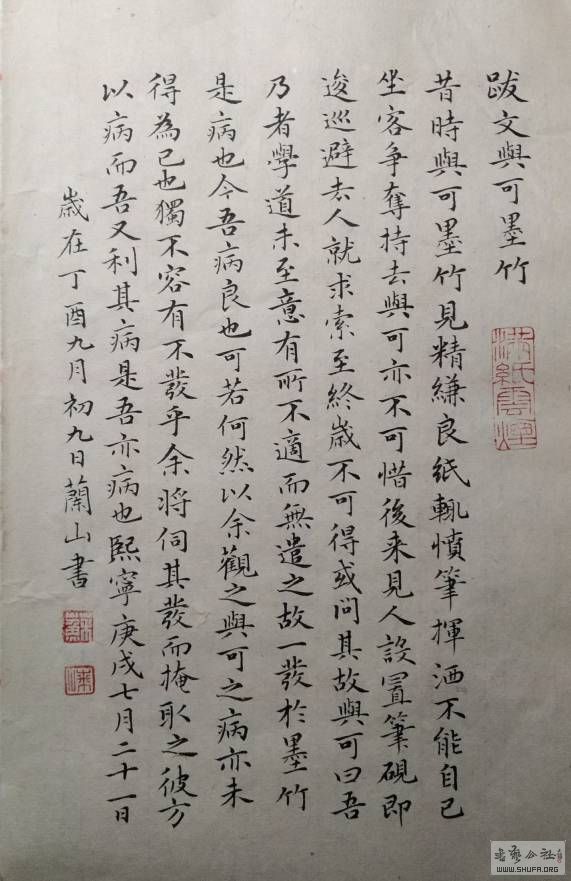 跋文與可墨竹
昔時與可墨竹見精縑良紙輒憤筆揮洒不能自已
坐客争奪持去與可亦不可惜後来見人設置筆硯即
逡巡避去人就求索至終歲不可得或問其故與可曰吾
乃者學道未至意有所不適而無遣之故一發於墨竹
是病也今吾病良也可若何然以余觀之與可之病亦未
得為已也獨不容有不發乎余将伺其發而掩取之彼方
以病而吾又利其病是吾亦病也熙寧庚戌七月二十一日
歲在丁酉九月初九日蘭山書
满紙雲煙
書藝公社
WWW.SHUFA.ORG